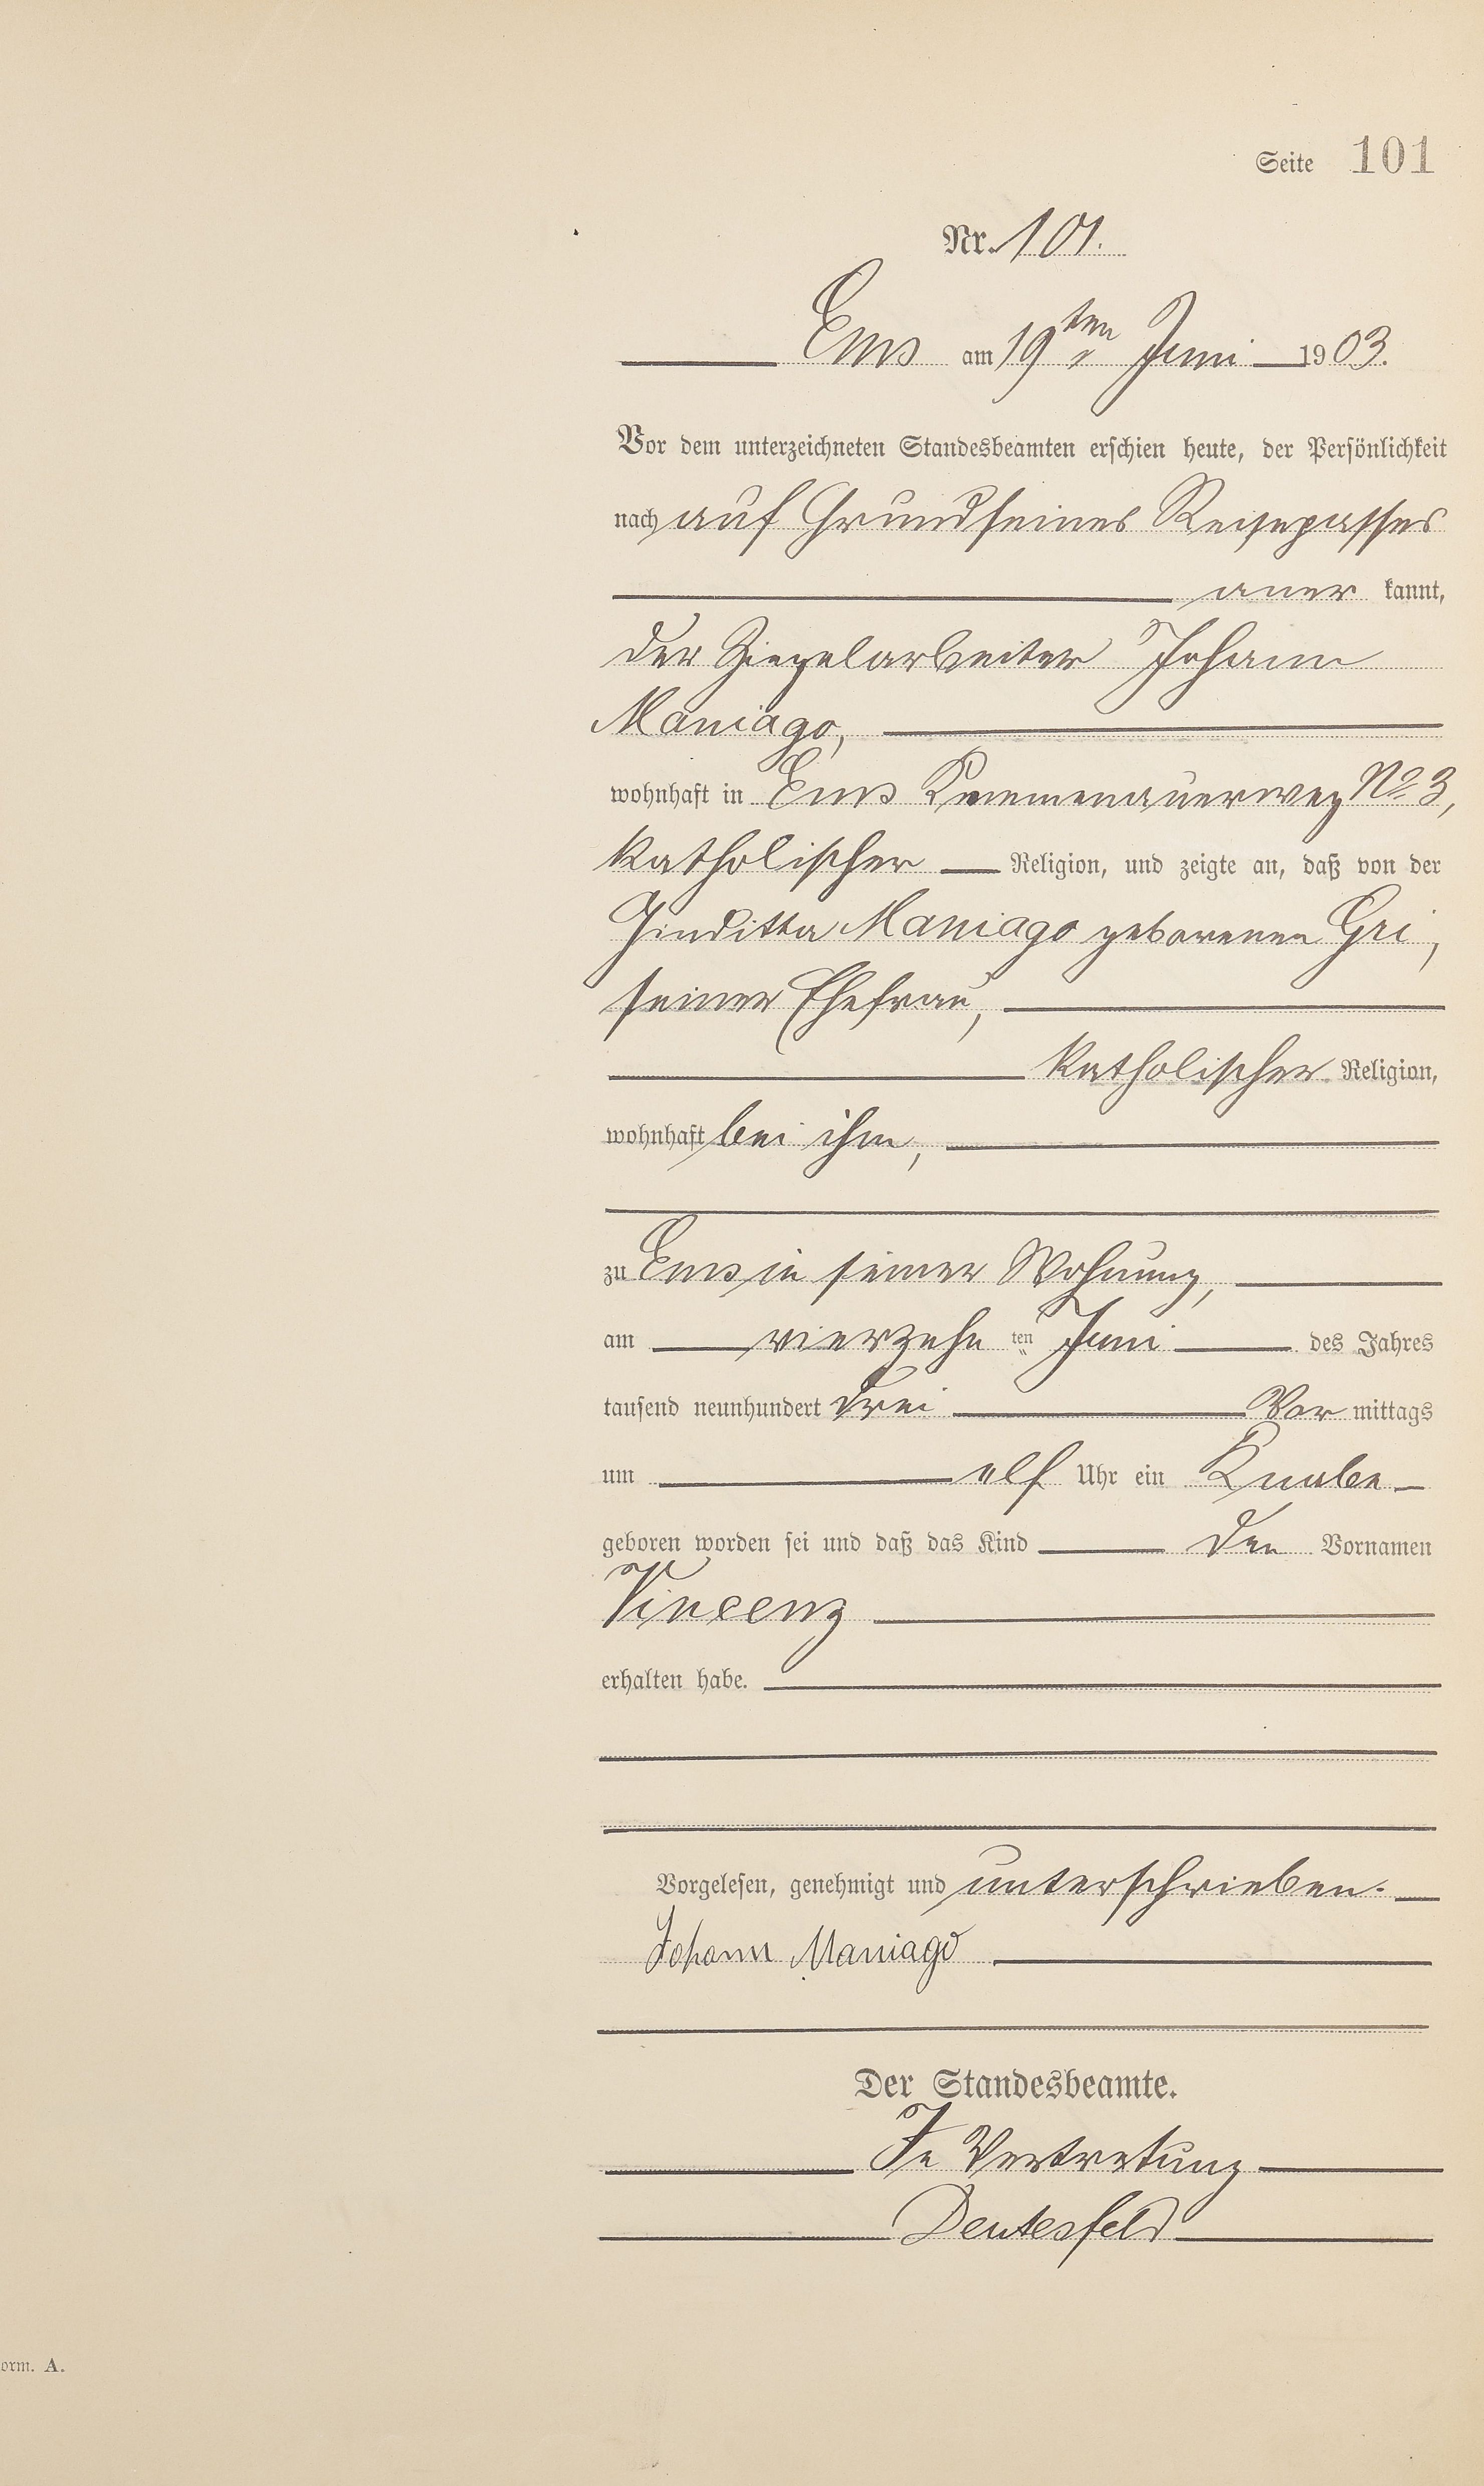 Seite 101
Nr. 101.
Ems am 19ten Juni 1903.
Vor dem unterzeichneten Standesbeamten erschien heute, der Persönlichkeit
nach auf Grund seines Reisepasses
aner kannt,
der Ziegelarbeiter Johann
Maniago,
wohnhaft in Ems Kemmenauerweg No 3,
katholischer Religion, und zeigte an, daß von der
Giuditta Maniago geborenen Gri,
seiner Ehefrau,
katholischer Religion,
wohnhaft bei ihm,
zu Ems in seiner Wohnung,
am vierzehn ten Juni des Jahres
tausend neunhundert drei Vor mittags
um elf Uhr ein Knabe
geboren worden sei und daß das Kind den Vornamen
Vincenz
erhalten habe.
Vorgelesen, genehmigt und unterschrieben.
Johann Maniago
Der Standesbeamte.
In Vertretung
Deutesfeld
orm. A.